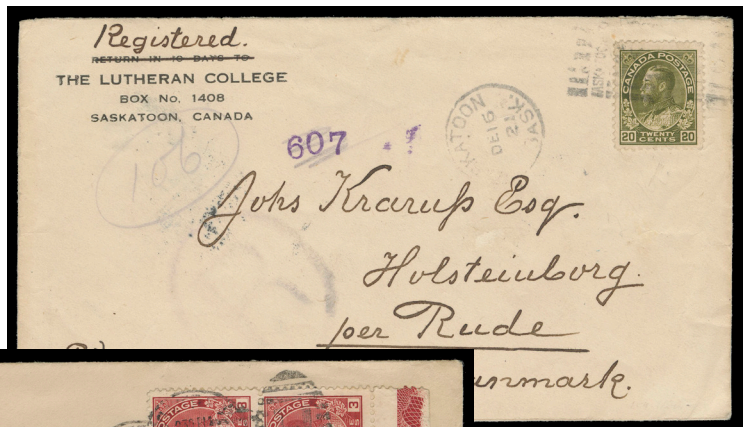 Registered.
RETURN IN 10 DAYS TO
THE LUTHERAN COLLEGE
BOX No. 1408
SASKATOON, CANADA
607
106
KATOON
SASK.
DE 15
CANADA POSTAGE
20 TWENTY CENTS 20
Johs Krarup Esq.
Holsteinborg
per Rude
POSTAGE
3
POSTAGE
3